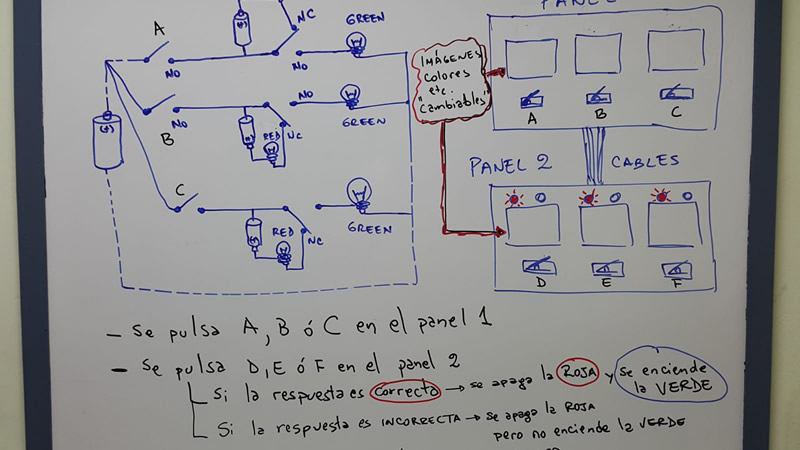 A
NC
GREEN
NO
NO
(+)
(+)
NO
B
NO
RED
NC
GREEN
(+)
C
RED
NC
GREEN
(+)
IMÁGENES
colores
etc.
"cambiables"
A B C
PANEL 2
CABLES
D E F
- Se pulsa A, B ó C en el panel 1
- Se pulsa D, E ó F en el panel 2
Si la respuesta es correcta → se apaga la ROJA y se enciende la VERDE
Si la respuesta es INCORRECTA → se apaga la ROJA
pero no enciende la VERDE